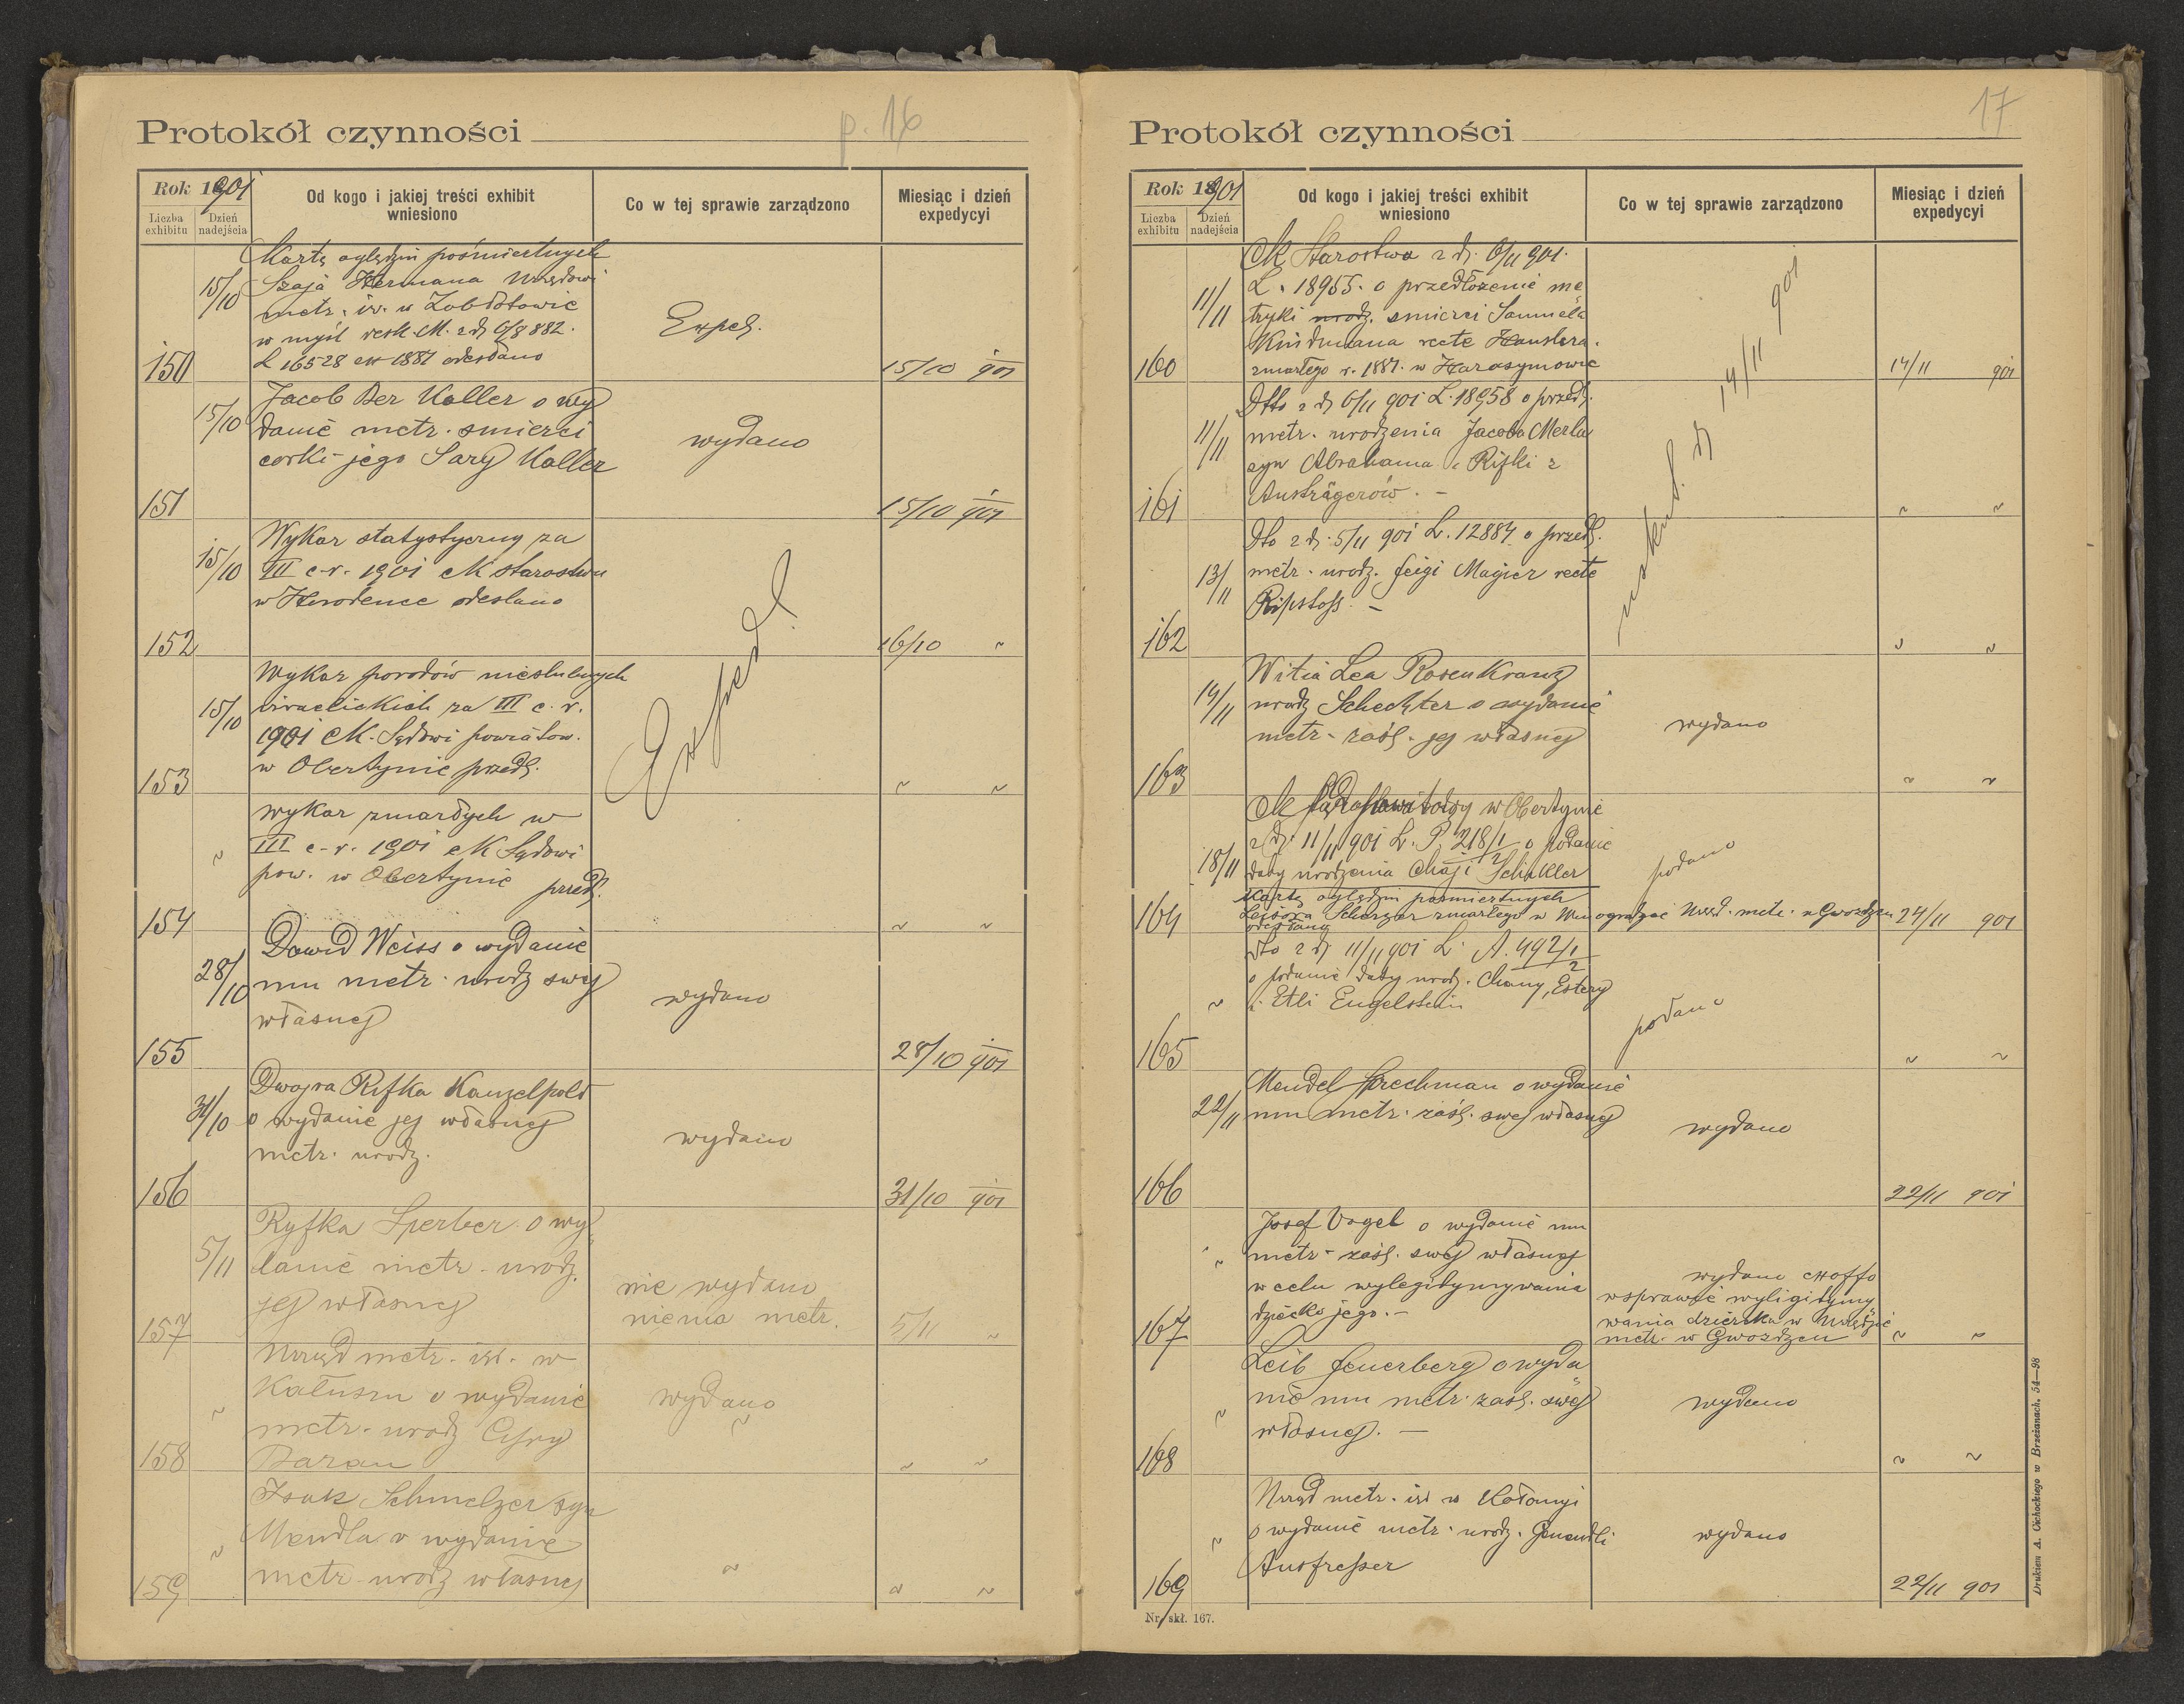 p. 16
Protokół czynności
Rok 1901
Liczba exhibitu
Dzień nadejścia
Od kogo i jakiej treści exhibit wniesiono
Co w tej sprawie zarządzono
Miesiąc i dzień expedycyi
150
15/10
Kartę oględzin pośmiertnych
Szaja Hermana Urzędowi
metr. izr. w
w myśl resk. M. z dj 6/8 882.
L 16528 ex 1881 odesłano
Exped.
15/10 901
151
15/10
Jacob Ber Koller o wy
danie metr. smierci
corki jego Sary Koller
wydano
15/10 901
152
15/10
Wykaz statystyczny za
III c.r. 1901 CK starostwu
w Horodence odesłano
Exped.
16/10 "
153
15/10
Wykaz porodów nieslubnych
izraelickich za III c. r.
1901 CK. Sądowi powiatow.
w Obertynie przedł.
" "
154
"
wykaz zmarłych w
III c.r. 1901 CK Sądowi
pow. w Obertynie przedł.
" "
155
28/10
Dawid Weiss o wydanie
mu metr. urodz swej
własnej
wydano
28/10 901
156
31/10
Dwojra Rifka Kanzelpold
o wydanie jej własnej
metr. urodz.
wydano
31/10 901
157
5/11
Ryfka Sperber o wy
danie metr. urodz.
jej własnej
nie wydano
niema metr.
5/11 "
158
"
Urząd metr. izr. w
Kałuszu o wydanie
metr. urodz Cipry
Baran
wydano
" "
159
"
Isak Schmelzer syn
Mendla o wydanie
metr urodz własnej
"
" "
17
Protokół czynności
Rok 1901
Liczba exhibitu
Dzień nadejścia
Od kogo i jakiej treści exhibit wniesiono
Co w tej sprawie zarządzono
Miesiąc i dzień expedycyi
160
11/11
CK Starostwo z dj. 6/11 901.
L. 18955. o przedłożenie me
tryki urodz. smierci Samuela
Kindmana recte Hauslera.
zmarłego r. 1887. w Harasymowie
14/11 901
14/11 901
161
11/11
Dtto z dj 6/11 901 L. 18958 o przedł.
metr. urodzenia Jacoba Merla
syn Abrahama i Rifki z
Austrägerów. -
" "
162
13/11
Dto z dj. 5/11 901 L. 12884 o przedł.
metr. urodz. feigi Magier recte
Ripstoss. -
" "
163
14/11
Witia Lea Rosenkranz
urodz Schechter o wydanie
metr. zaśl. jej własnej
wydano
" "
164
18/11
w Obertynie
z dj. 11/11 901 L. P. 218/1 o podanie
2
daty urodzenia Chaji Schikler
podano
Kartę oględzin pośmiertnych
Scherzer zmarłego w Winogradzie Urzęd. metr. w Gwozdzcu
odesłano
24/11 901
165
"
dto z dj 11/11 901 L. A. 492/1
2
o podanie daty urodz. Chany, Estery
i Etli Engelstein
podano
" "
166
22/11
Mendel Sprechman o wydanie
mu metr. zaśl. swej własnej
wydano
22/11 901
167
"
Josef Vogel o wydanie mu
metr. zaśl. swej własnej
w celu wylegitymywania
dziecko jego. -
wydano
w sprawie wyligitymy
wania dziecka w Urzędzie
metr. w Gwozdzcu
" "
168
"
Leib feuerberg o wyda
nie mu metr. zaśl. swej
własnej. -
wydano
" "
169
"
Urząd metr. izr w Kołomyi
o wydanie metr. urodz. Genendli
Ausfresser
wydano
22/11 901
Nr. skł. 167.
Drukiem A. Cichockiego w Brzeżanach. 54—98